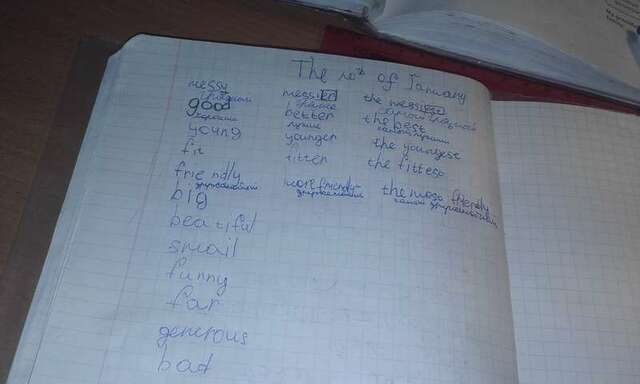 The 10th of January
messy messier the messiest
good better the best
хороший лучше самый лучший
young younger the youngest
fit fitter the fittest
friendly more friendly the most friendly
дружелюбный
big
beatiful
small
funny
far
generous
bad